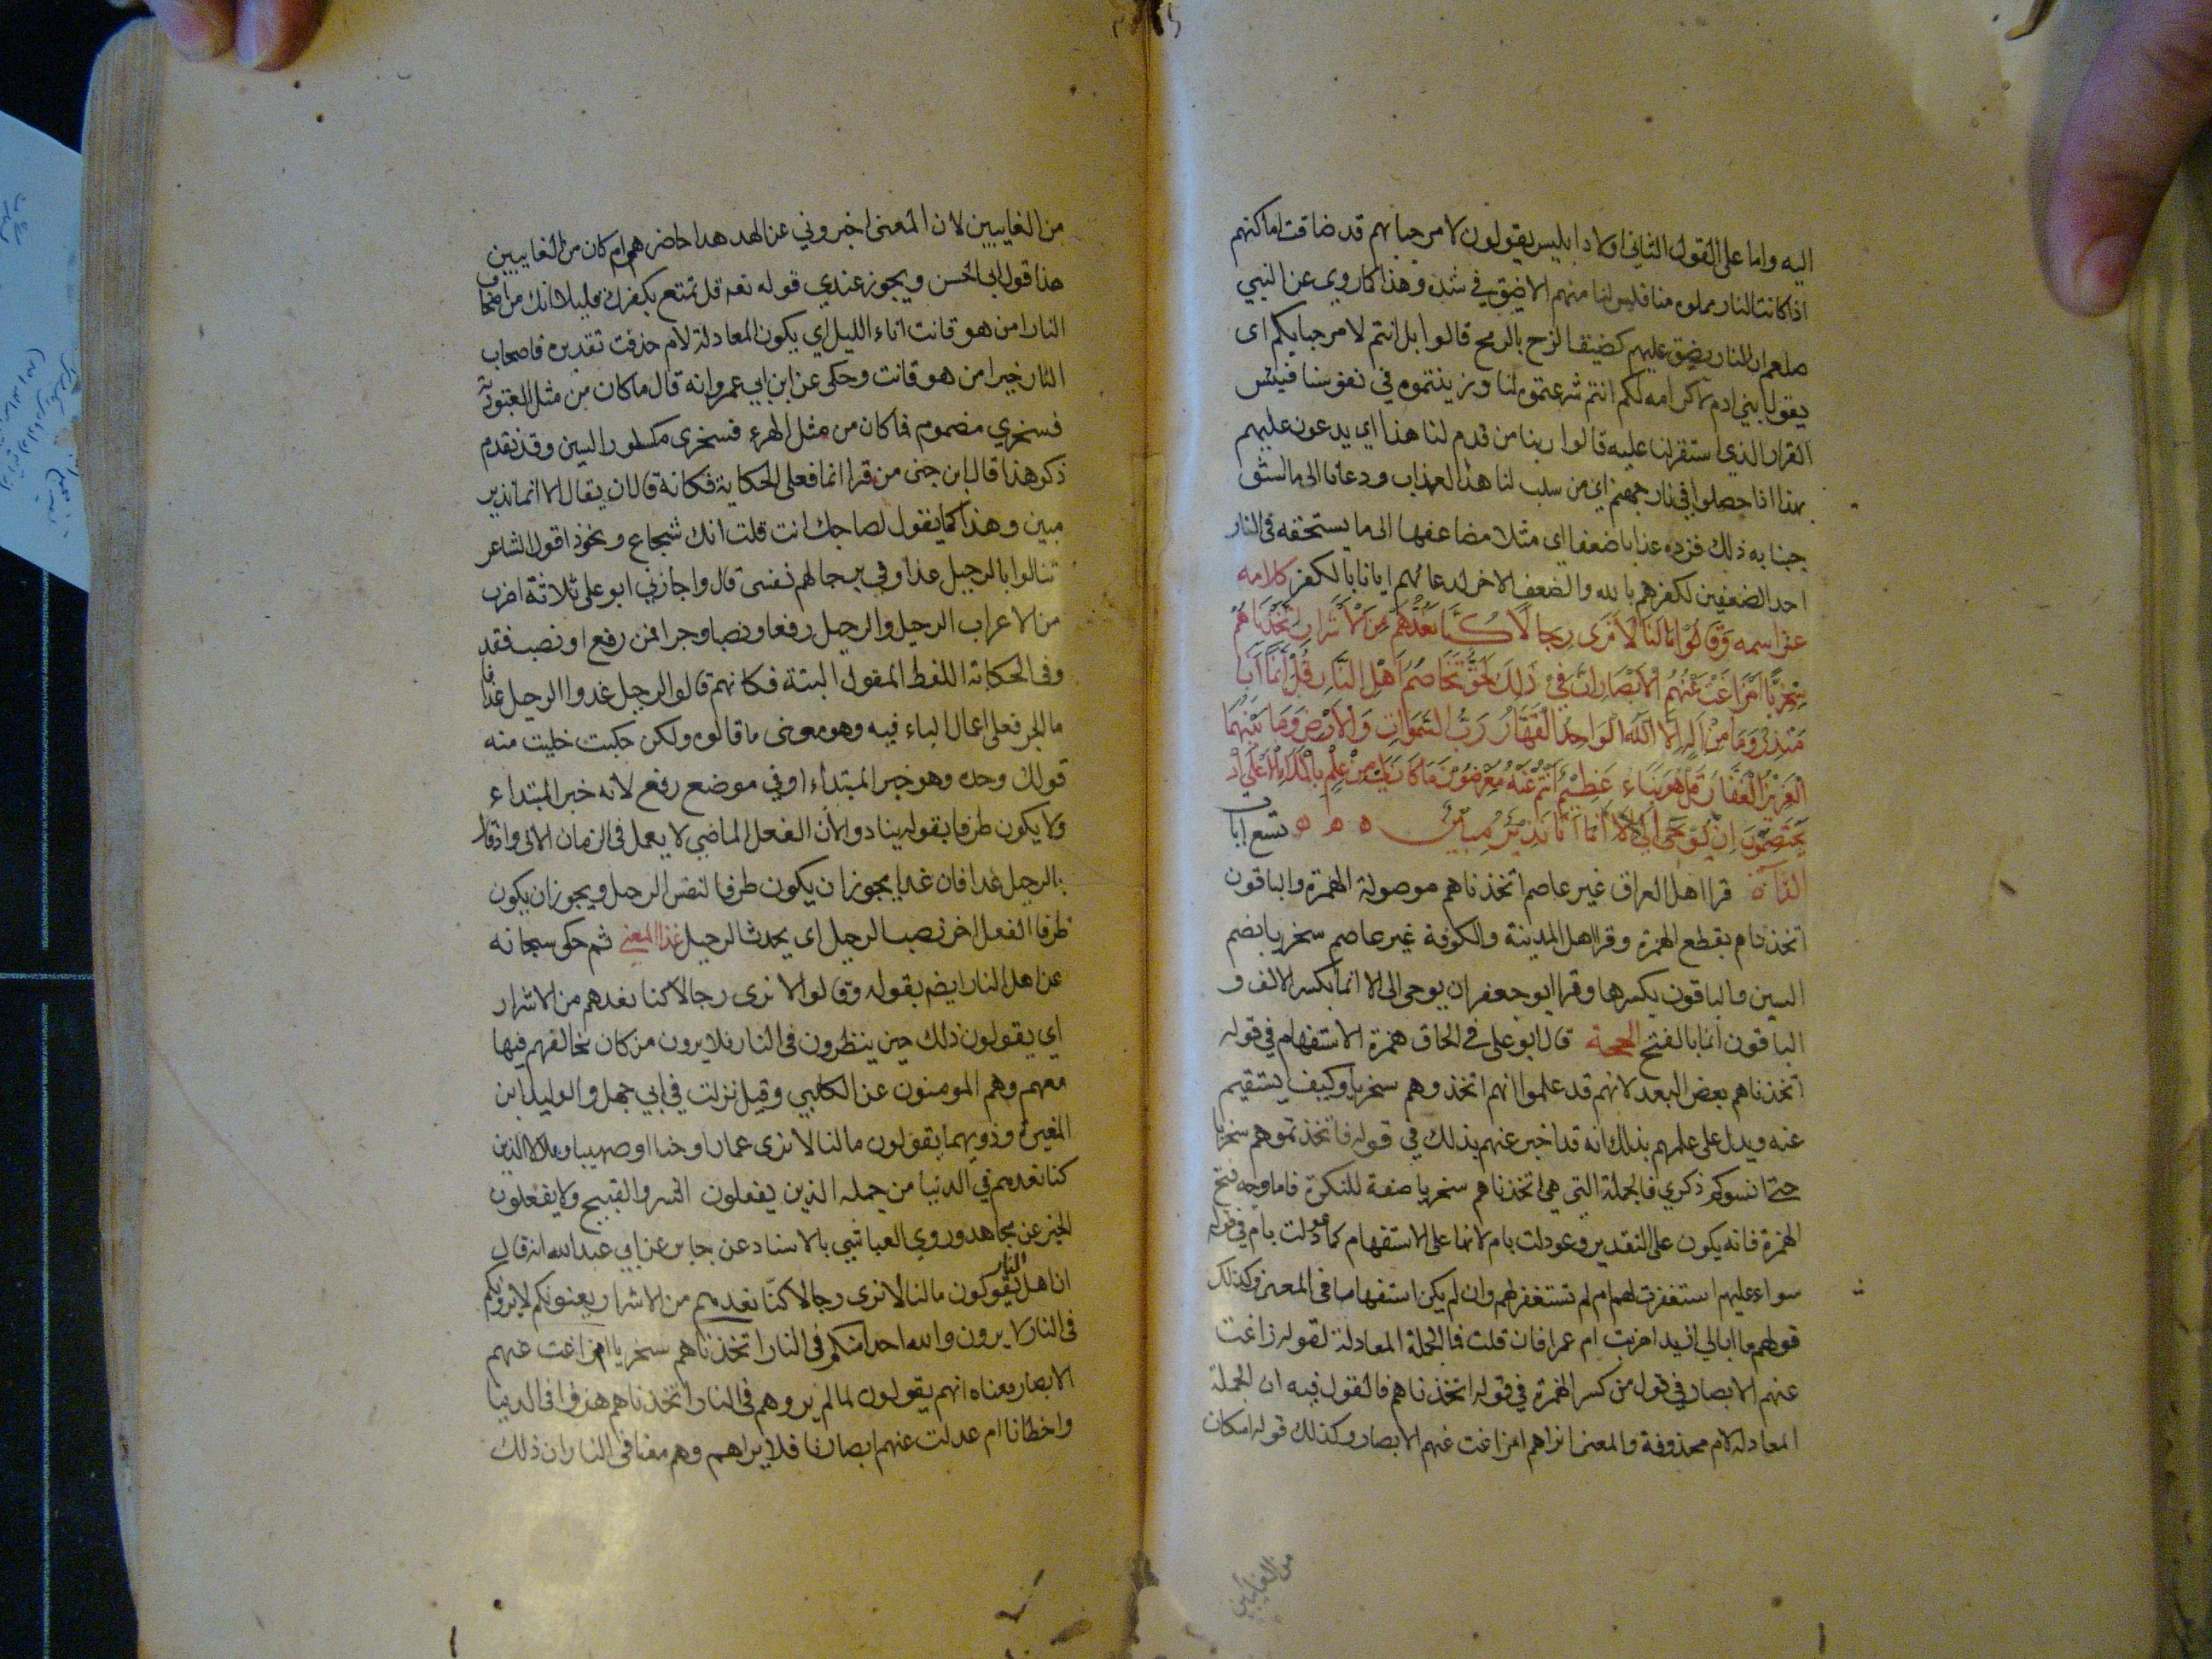 اليه واما على القول الثاني اولاد ابليس يقولون لا مرحبا بهم قد ضاقت اماكنهم
اذا كانت النار مملوه منا فليس لنا منهم الا ضيق في شده وهذا كما روي عن النبي
صلعم ان النار يضيق عليهم كضيق الزج بالرمح قالوا بل انتم لا مرحبا بكم اى
يقول بني ادم لا كرامه لكم انتم شرعتموه لنا وزينتموه في نفوسنا فبئس
القرار الذي استقرنا عليه قالوا ربنا من قدم لنا هذا اي يدعون عليهم
بهذا اذا حصلوا في نار جهنم اي من سبب لنا هذا العذاب ودعانا الى ما استو
جبنا به ذلك فزده عذابا ضعفا اى مثلا مضاعفها الى ما يستحقه فى النار
احد الضعفين لكفرهم بالله والضعف الاخر لدعائهم ايانا بالكفر كلامه
عز اسمه وَقَالُوا مَا لَنَا لَا نَرَى رِجَالًا كُنَّا نَعُدُّهُمْ مِنَ الْأَشْرَارِ اتَّخَذْنَاهُمْ
سِخْرِيًّا أَمْ زَاغَتْ عَنْهُمُ الْأَبْصَارُ إِنَّ فِي ذَلِكَ لَحَقٌّ تَخَاصُمُ أَهْلِ النَّارِ قُلْ إِنَّمَا أَنَا
مُنْذِرٌ وَمَا مِنْ إِلَهٍ إِلَّا اللَّهُ الْوَاحِدُ الْقَهَّارُ رَبُّ السَّمَوَاتِ وَالْأَرْضِ وَمَا بَيْنَهُمَا
الْعَزِيزُ الْغَفَّارُ قُلْ هُوَ نَبَاءٌ عَظِيمٌ أَنْتُمْ عَنْهُ مُعْرِضُونَ مَا كَانَ لِيَ مِنْ عِلْمٍ بِالْمَلَإِ الْأَعْلَى إِذْ
يَخْتَصِمُونَ إِنْ يُوحَى إِلَيَّ إِلَّا أَنَّمَا أَنَا نَذِيرٌ مُبِينٌ ه ه ه تسع ايات
القرآة قرا اهل العراق غير عاصم اتخذناهم موصولة الهمزة والباقون
اتخذناهم بقطع الهمزة وقرا اهل المدينة والكوفة غير عاصم سخريا بضم
السين والباقون بكسرها وقرا ابو جعفر ان يوحى الى الا انما بكسر الالف و
الباقون انما بالفتح الحجة قال ابو على فى الحاق همزة الاستفهام في قوله
اتخذناهم بعض البعد لانهم قد علموا انهم اتخذوهم سخريا وكيف يستقيم
عنه ويدل على علمهم بذلك انه قد اخبر عنهم بذلك في قوله فاتخذتموهم سخريا
حتى انسوكم ذكري فالجملة التي هي اتخذناهم سخريا صفة للنكرة فاما وجه فتح
الهمزة فانه يكون على التقدير وعودلت بام لانها على الاستفهام كما عودلت بام في قوله
سواء عليهم استغفرت لهم ام لم تستغفر لهم وان لم يكن استفهاما فى المعنى وكذلك
قولهم ما ابالي ازيدا ضربت ام عمرا فان قلت فما الجملة المعادلة لقوله زاغت
عنهم الابصار في قول من كسر الهمزة في قوله اتخذناهم فالقول فيه ان الجملة
المعادله لام محذوفة والمعنى اتراهم ام زاغت عنهم الابصار وكذلك قوله ام كان
من الغايبين
من الغايبين لان المعنى اخبروني عن الهدهد احاضر هو ام كان من الغايبين
هذا قول ابي الحسن ويجوز عندي قوله تعه قل تمتع بكفرك قليلا انك من اصحاب
النار امن هو قانت اناء الليل اي يكون المعادلة لام حذفت تقديره فاصحاب
النار خير امن هو قانت وحكى عن ابن ابي عمرو انه قال ما كان من مثل العبودية
فسخري مضموم وما كان من مثل الهزء فسخرى مكسور السين وقد تقدم
ذكر هذا قال ابن جنى من قرا انما فعلى الحكاية فكانه قال ان يقال الا انما نذير
مبين وهذا كما يقول لصاحبك انت قلت انك شجاع ونحو ذا قول الشاعر
تنالوا بالرحيل غدا وفي ترحالهم نفسى قال واجازني ابو على ثلاثة اضرب
من الاعراب الرحيل والرحيل رفعا ونصبا وجرا فمن رفع او نصب فقد
وفى الحكاية اللفظ المقول البتة فكانهم قالوا الرحيل غدا والرحيل غدا فا
ما الجر فعلى اعمال الباء فيه وهو معنى ما قالوه ولكن حكيت خليت منه
قولك وحده وهو خبر المبتداء او في موضع رفع لانه خبر المبتداء
ولا يكون ظرفا بقوله ينادوا لان الفعل الماضي لا يعمل فى الزمان الاتى واذا قال
بالرحيل غدا فان غدا يجوز ان يكون ظرفا لنفس الرحيل ويجوز ان يكون
ظرفا الفعل اخر نصب الرحيل اى يحدث الرحيل غدا المعنى ثم حكى سبحانه
عن اهل النار ايضم بقوله وقالوا لا نرى رجالا كنا نعدهم من الاشرار
اي يقولون ذلك حين ينظرون فى النار فلا يرون من كان يخالفهم فيها
معهم وهم المومنون عن الكلبي وقيل نزلت في ابي جهل والوليد ابن
المغيرة وذويهما يقولون ما لنا لا نرى عمارا وخبابا وصهيبا وبلالا الذين
كنا نعدهم في الدنيا من جمله الذين يفعلون الشر والقبيح ولا يفعلون
الخير عن مجاهد وروي العياشي بالاسناد عن جابر عن ابي عبد الله انه قال
ان اهل النار يقولون ما لنا لا نرى رجالا كنّا نعدهم من الاشرار يعنونكم لا يرونكم
فى النار لا يرون والله احدا منكم فى النار اتخذناهم سخريا ام زاغت عنهم
الابصار معناه انهم يقولون لما لم يروهم فى النار اتخذناهم هزوا فى الدنيا
واخطانا ام عدلت عنهم ابصارنا فلا يراهم وهم معنا فى النار ان ذلك